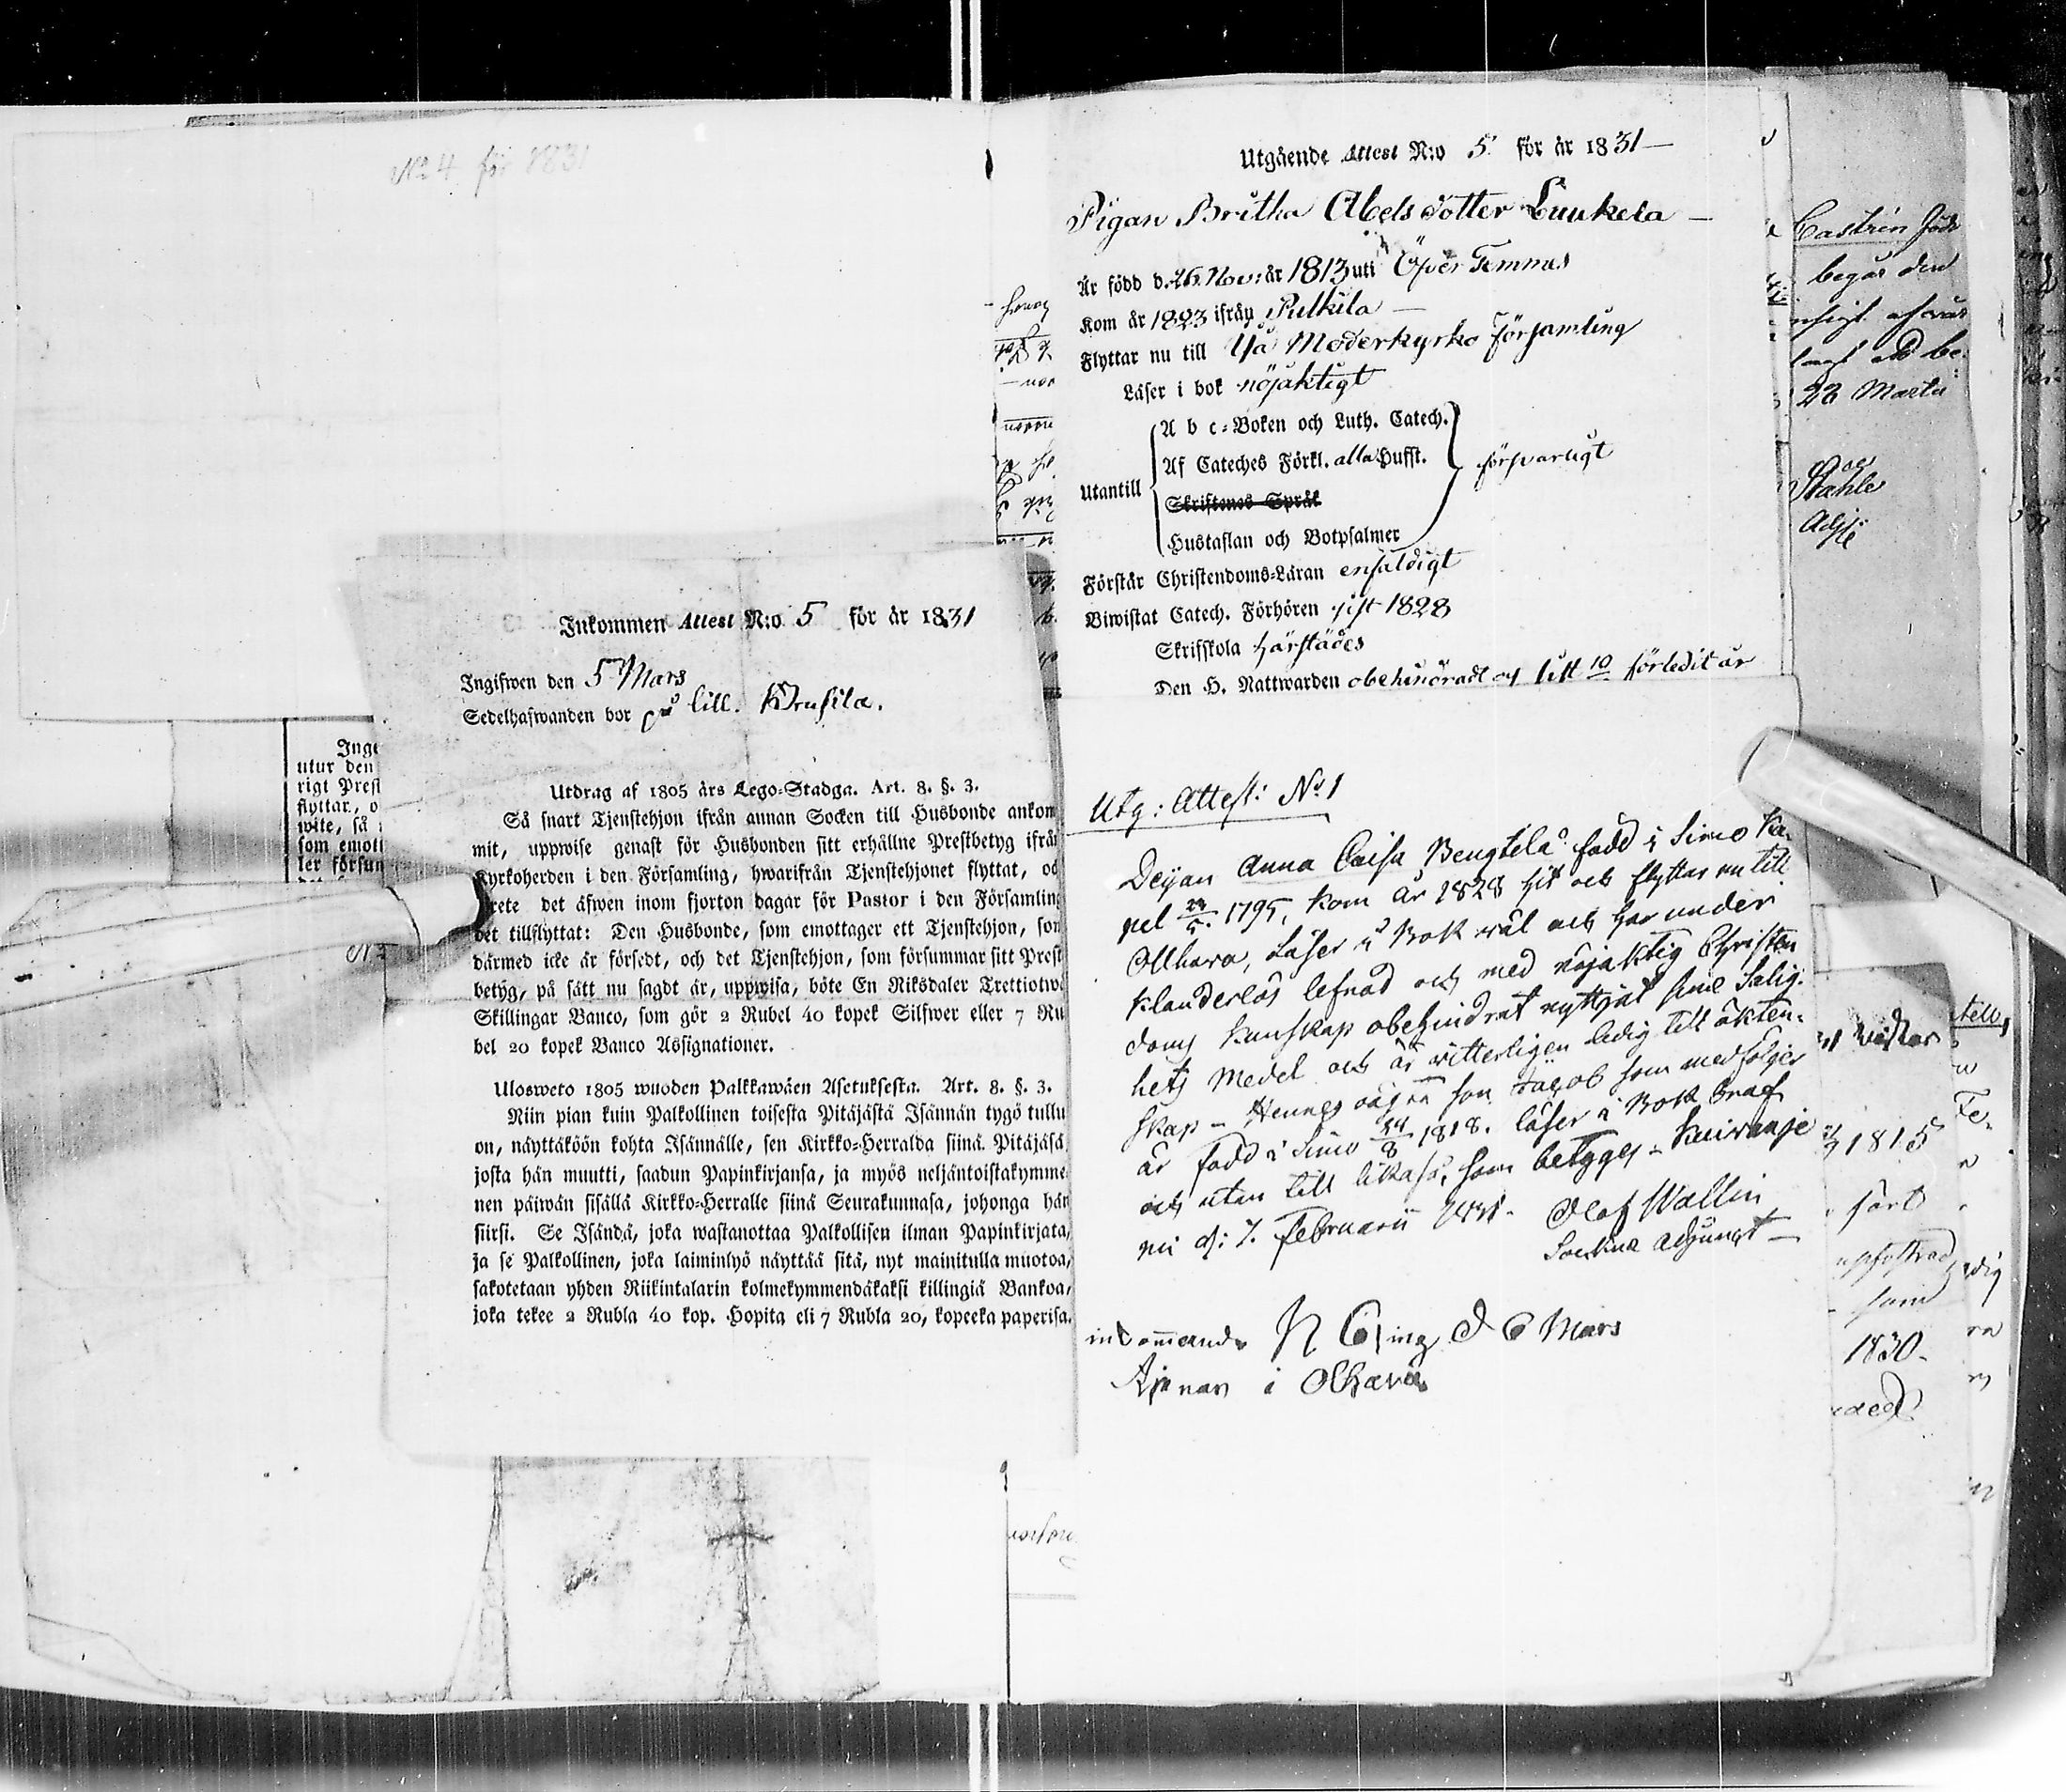 No 4 för 1831
Inkommen Attest N:o 5 för år 1831
Ingifwen den 5 Mars
Sedelhafwanden bor på lill. Krusila.
Utdrag af 1805 års Lego-Stadga. Art. 8. §. 3.
Så snart Tjenstehjon ifrån annan Socken till Husbonde ankom
mit, uppwise genast för Husbonden sitt erhållne Prestbetyg ifrån
Kyrkoherden i den Församling, hwarifrån Tjenstehjonet flyttat, oc
rete det äfwen inom fjorton dagar för Pastor i den Församling
det tillflyttat: Den Husbonde, som emottager ett Tjenstehjon, som
därmed icke är försedt, och det Tjenstehjon, som försummar sitt Prest
betyg, på sätt nu sagdt är, uppwisa, böte En Riksdaler Trettiotwå
Skillingar Banco, som gör 2 Rubel 40 kopek Silfwer eller 7 Ru
bel 20 kopek Banco Assignationer.
Ulosweto 1805 wuoden Palkkawäen Asetuksesta. Art. 8. §. 3.
Niin pian kuin Palkollinen toisesta Pitäjästä Isännän tygö tullu
on, näyttäköön kohta Isännälle, sen Kirkko-Herralda siinä Pitäjäsä
josta hän muutti, saadun Papinkirjansa, ja myös neljäntoistakymme
nen päiwän sisällä Kirkko-Herralle siinä Seurakunnasa, johonga hän
siirsi. Se Isändä, joka wastanottaa Palkollisen ilman Papinkirjata,
ja se Palkollinen, joka laiminlyö näyttää sitä, nyt mainitulla muotoa,
sakotetaan yhden Riikintalarin kolmekymmendäkaksi killingiä Bankoa,
joka tekee 2 Rubla 40 kop. Hopita eli 7 Rubla 20, kopeeka paperisa.
Inge
utur den
rigt Prest
flyttar, o
wite, så
som emott
ler försum
Utgående Attest N:o 5 för år 1831
Pigan Britha Abels dotter Luukela
Är född d. 26 Nov: år 1813 uti Öfver Temmes
Kom år 1823 ifrån Pulkila
Flyttar nu till Ijå Moderkyrko församling
Läser i bok nöjaktigt
A b c-Boken och Luth. Catech.
Af Cateches Förkl. alla Hufst. försvarligt
Utantill
Skriftenes Språk
Hustaflan och Botpsalmer
Förstår Christendoms-Läran enfaldigt
Biwistat Catech. Förhören sist 1828
Skriftskola härstädes
Den H. Nattwarden obehindradt och sist 10 förledit år
Utg: Attest: No 1
Deijan Anna Caisa Bengtila född i Simo Ka-
pel 1795, kom år 1828 hit och flyttar nu till
Olhava, Läser i Bok väl och har under
klanderlös lefnad och med nöjaktig Christen
doms kunskap obehindrat nyttjat sine Salig-
hets Medel och är vitterligen ledig till äkten-
skap - Hennes oägta son Jacob som medfölger
är född i Simo 1818. läser i Bok braf
och utan till likaså, som betyges - Kuivanie-
mi d: 7. Februarii 1831. Olof Wallin
Sockne adjunct
inkommande N 6 ing d 6 Mars
i Olhava
Castrén född
begär den
28 Martii
Ståhle
Adj:
1815
fört
som
1830.